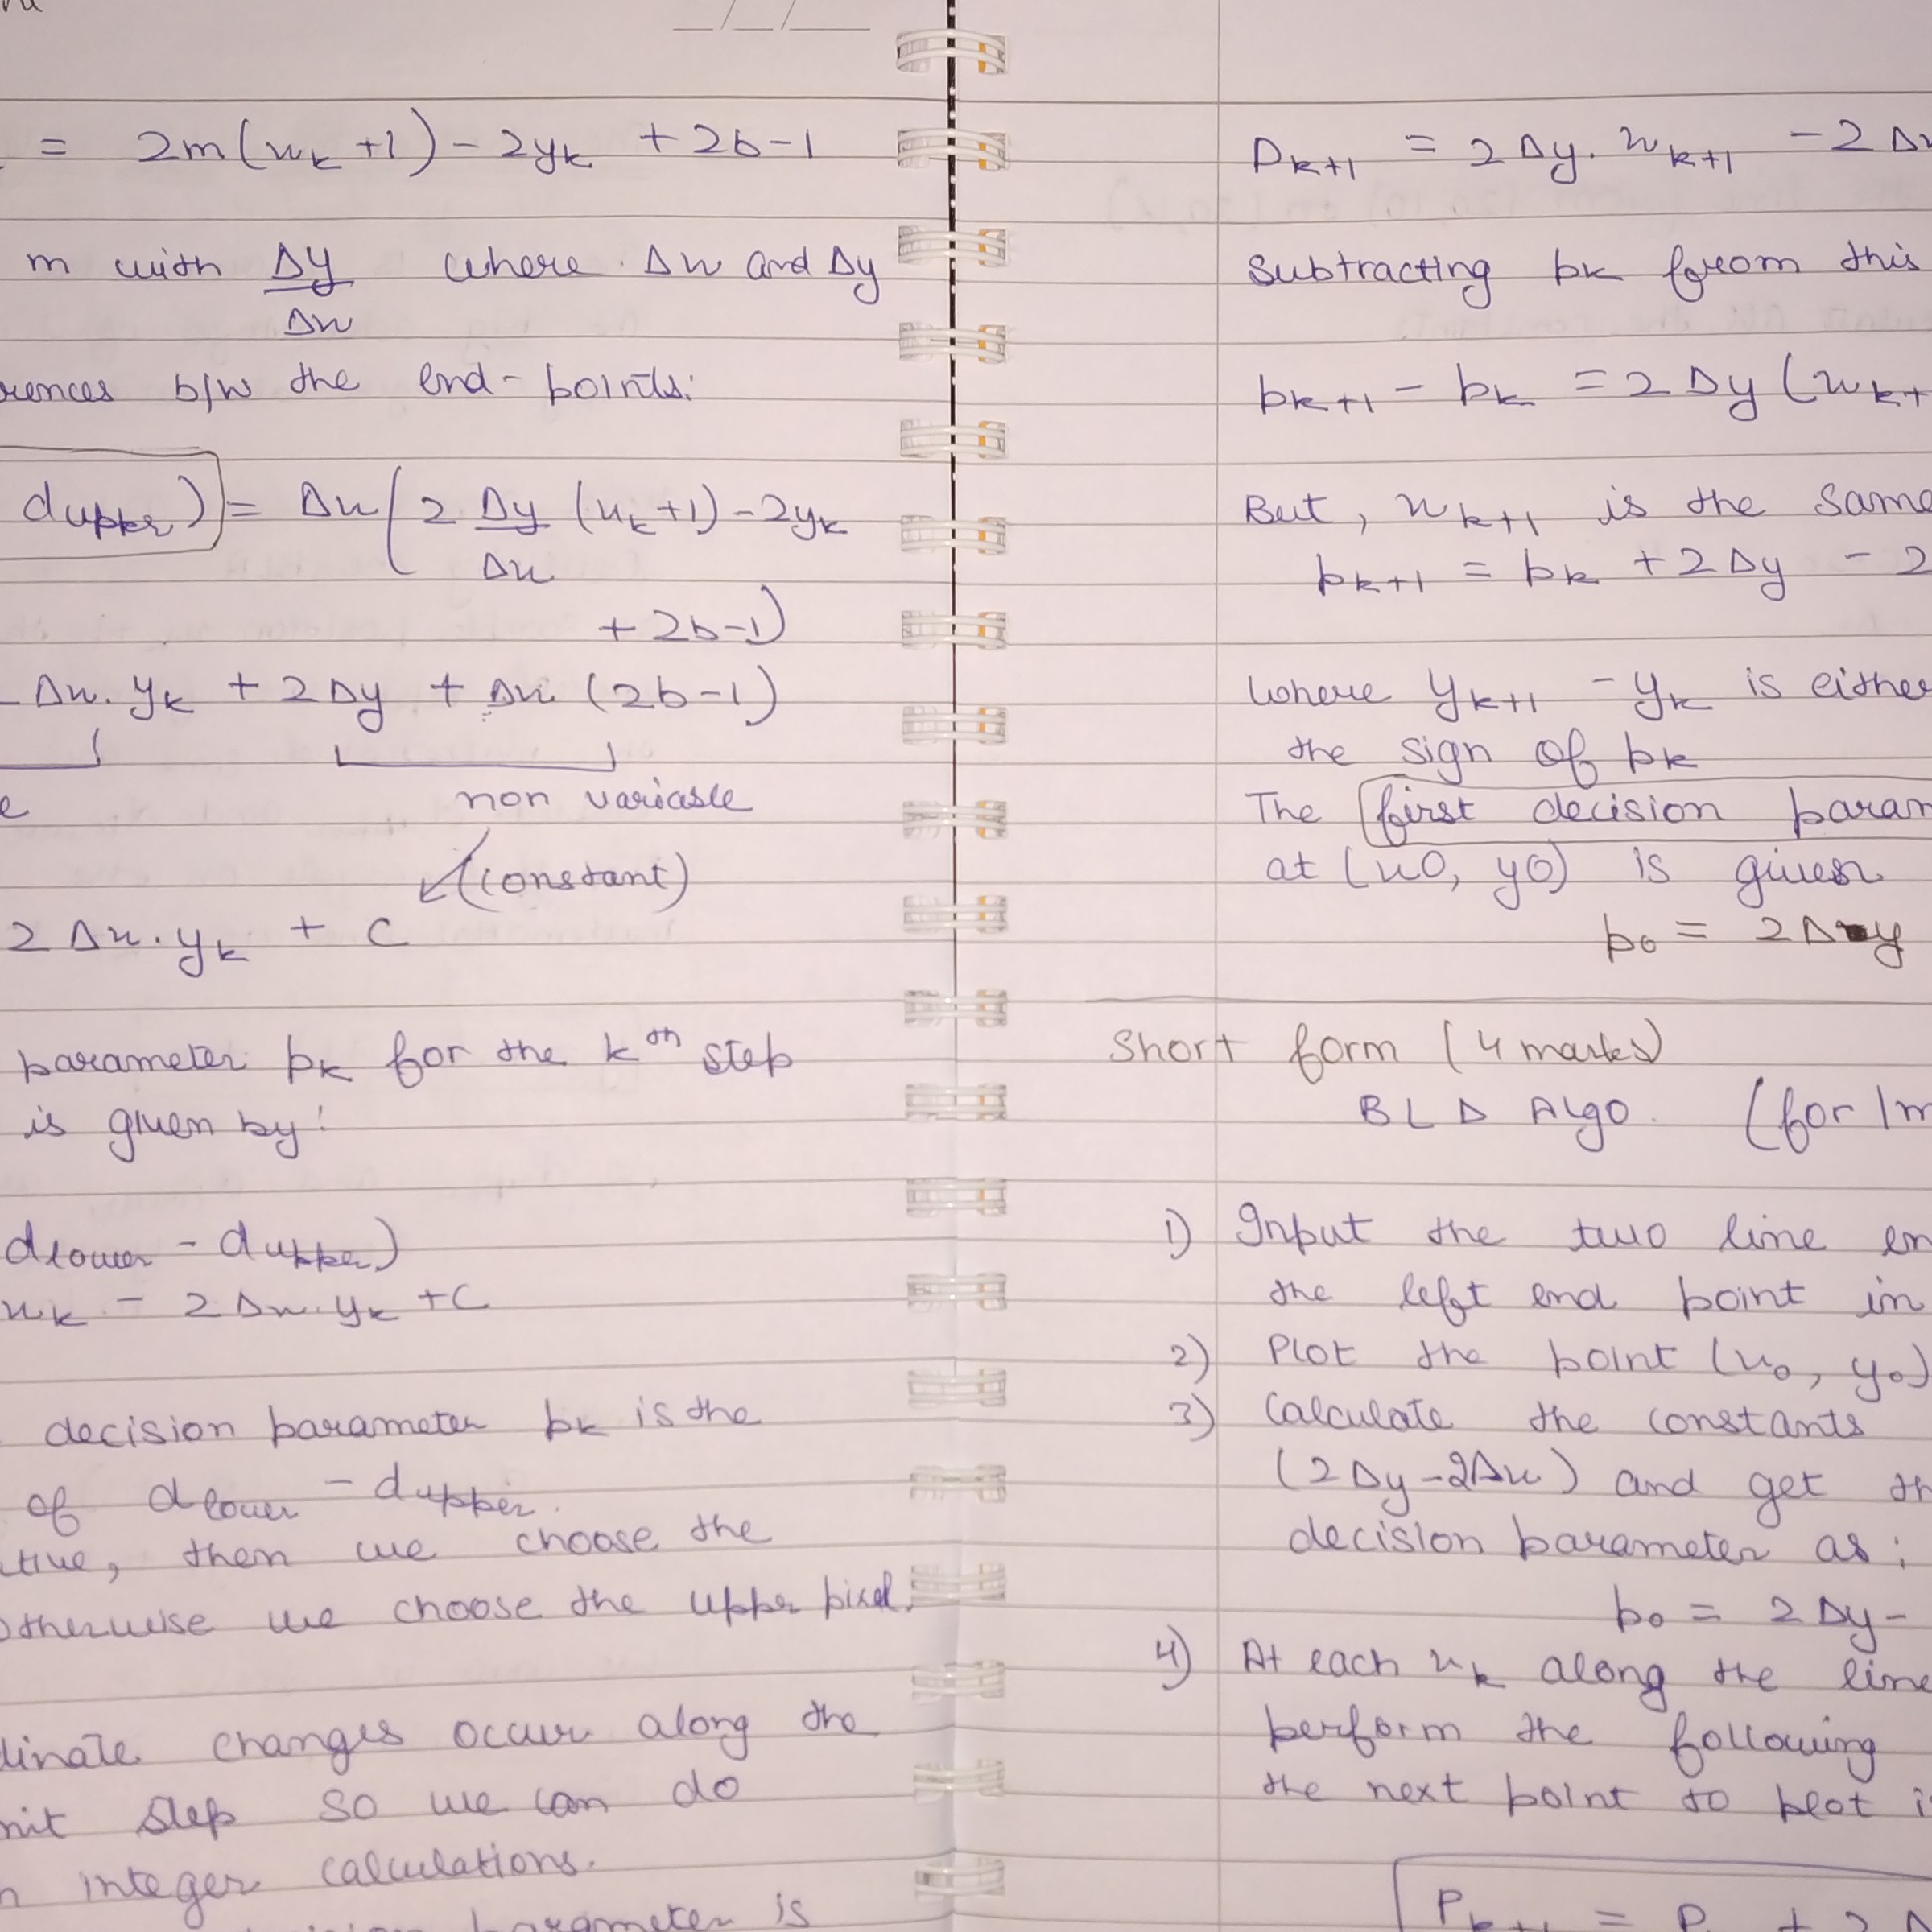 = 2m(xk+1) - 2yk + 2b-1
m with Δy/Δx where Δx and Δy
rences b/w the end-points:
dupper) = Δx(2 Δy/Δx (xk+1) - 2yk
+ 2b-1)
Δx. yk + 2Δy + Δx (2b-1)
e
non variable
(constant)
2Δx. yk + C
parameter pk for the kth step
is given by:
dlower - dupper)
xk - 2Δx. yk + C
decision parameter pk is the
of dlower - dupper.
tive, then we choose the
otherwise we choose the upper pixel.
dinate changes occur along the
nit step so we can do
integer calculations.
parameter is
Pk+1 = 2Δy. xk+1 - 2Δx
Subtracting pk from this
pk+1 - pk = 2Δy (xk+
But, xk+1 is the same
pk+1 = pk + 2Δy - 2
where yk+1 - yk is either
the sign of pk
The first decision param
at (x0, y0) is given
p0 = 2Δy
Short form (4 marks)
BLD Algo. (for |m
1) Input the two line en
the left end point in
2) Plot the point (x0, y0)
3) Calculate the constants
(2Δy-2Δx) and get th
decision parameter as:
p0 = 2Δy-
4) At each xk along the line
perform the following
the next point to plot i
Pk+1 = P + 2Δ